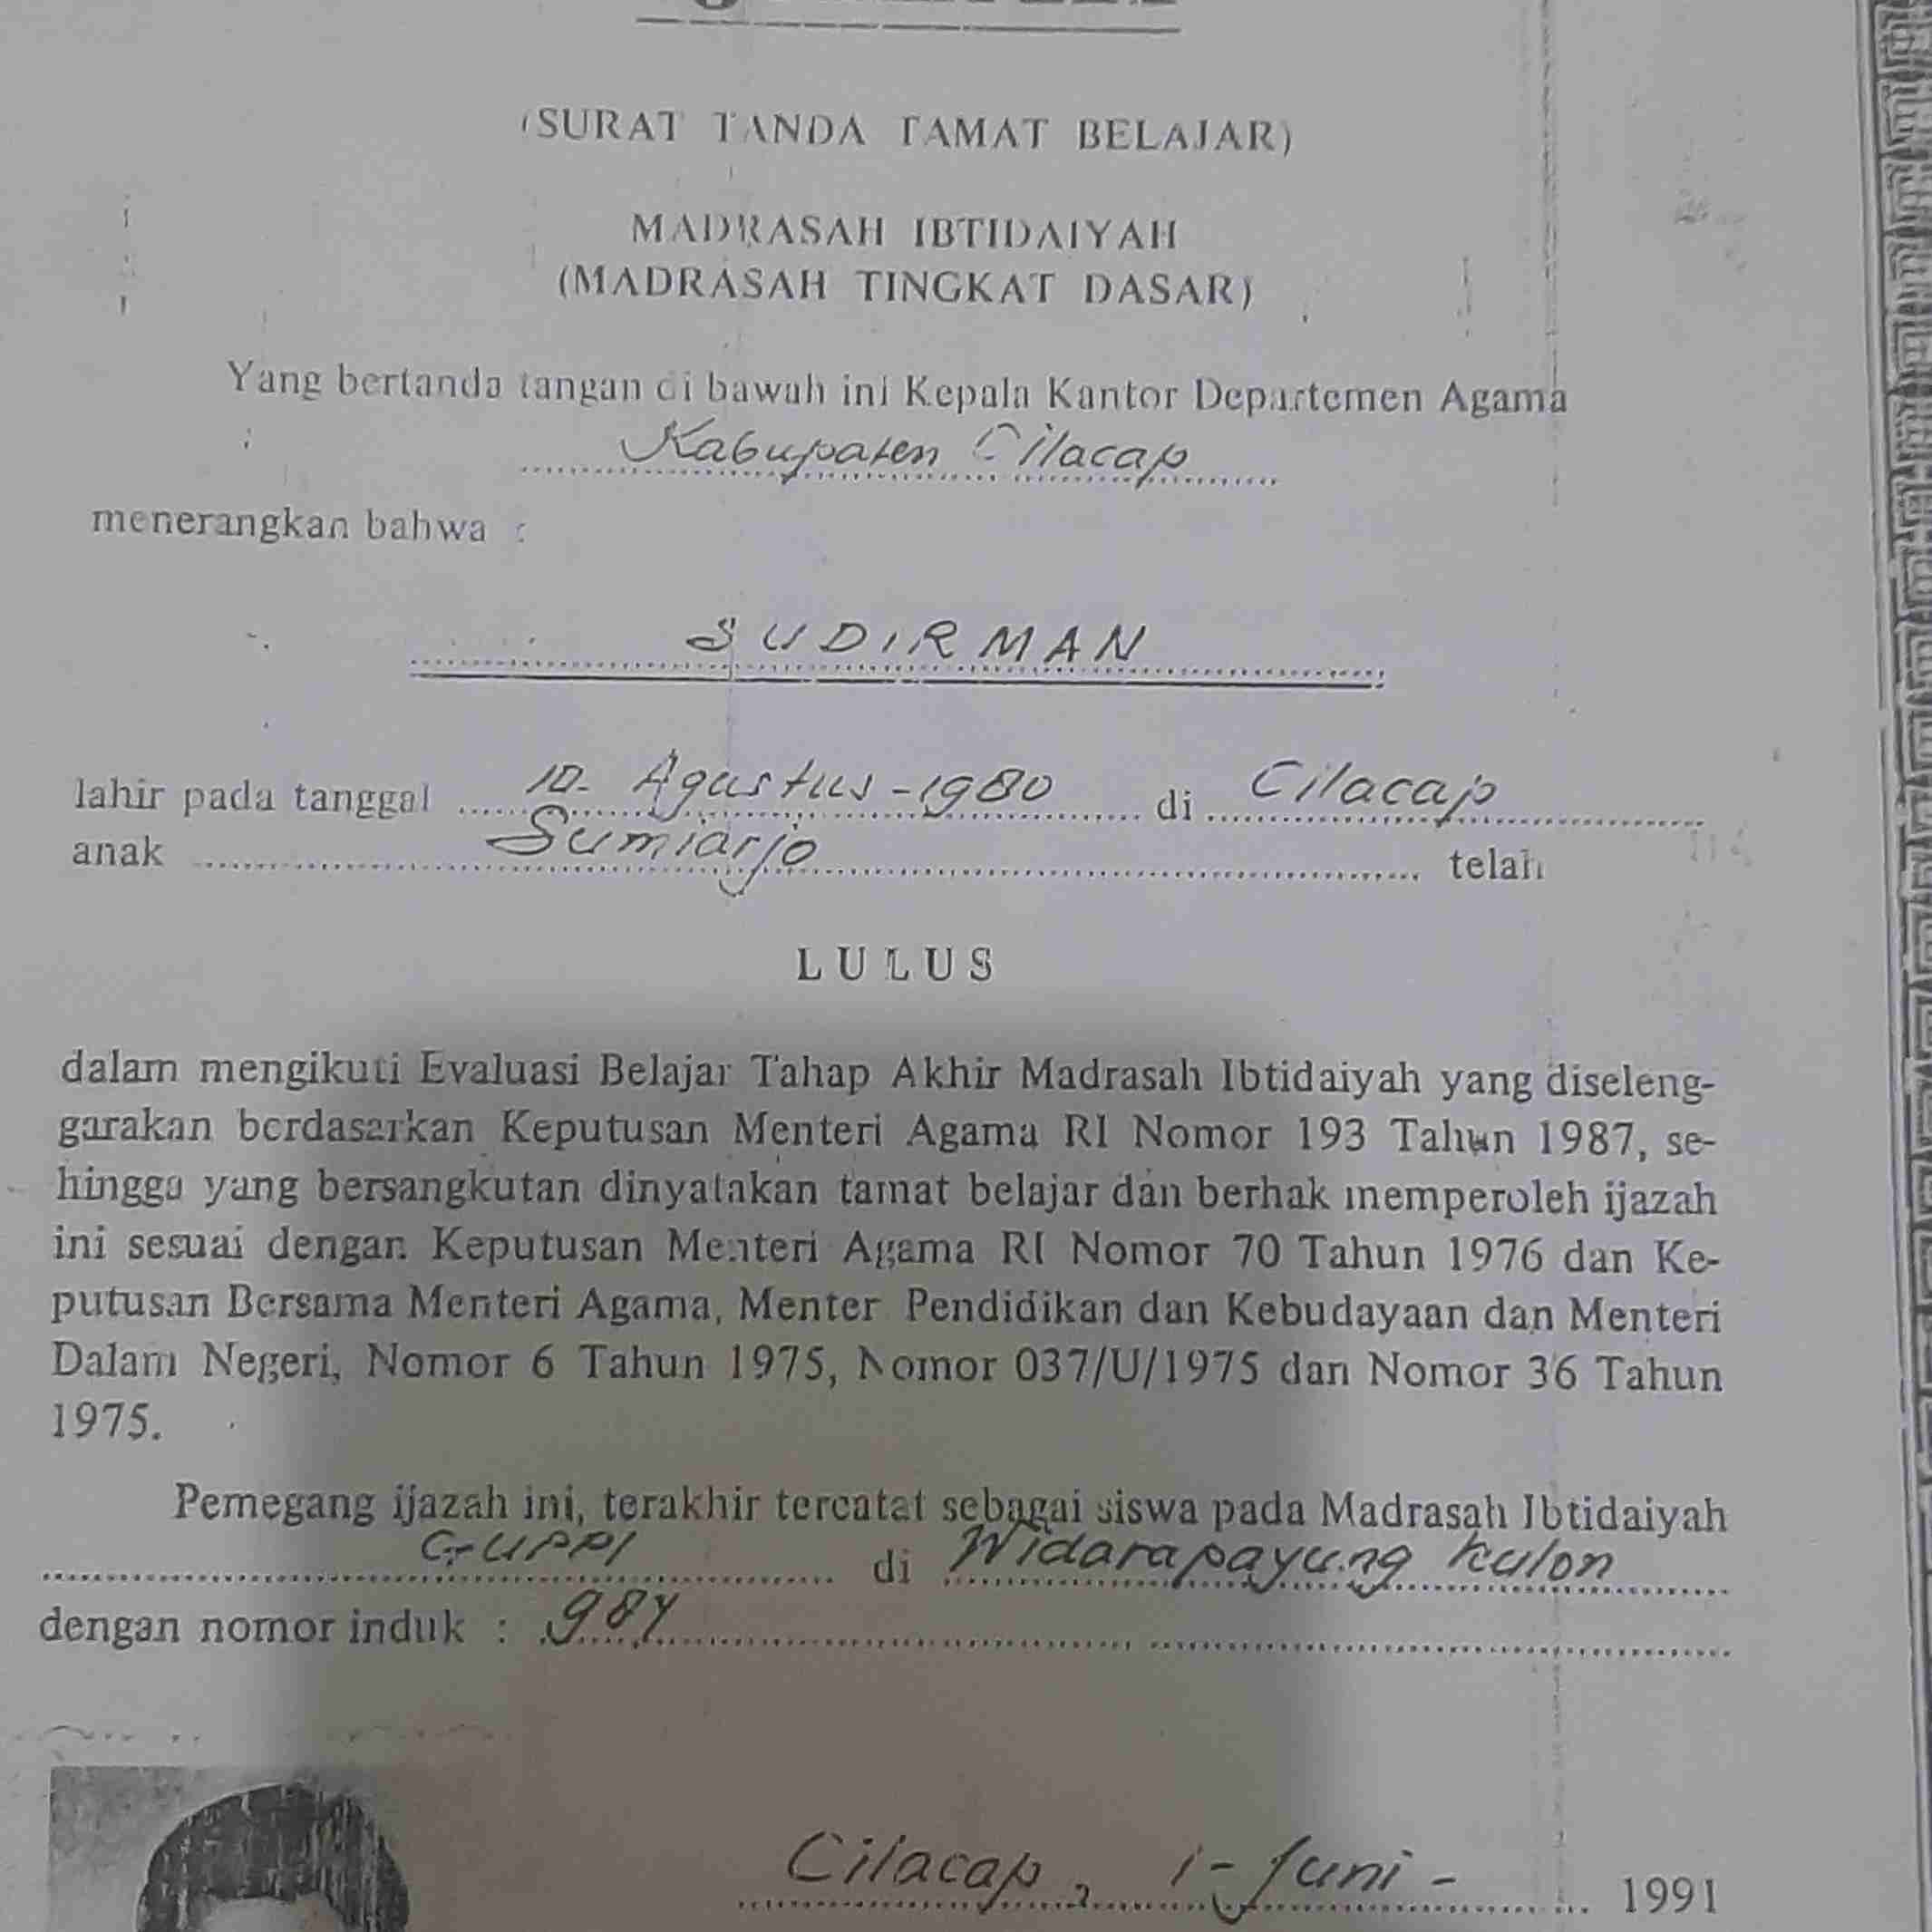 (SURAT TANDA TAMAT BELAJAR)
MADRASAH IBTIDAIYAH
(MADRASAH TINGKAT DASAR)
Yang bertanda tangan di bawah ini Kepala Kantor Departemen Agama
Kabupaten Cilacap
menerangkan bahwa :
SUDIRMAN
lahir pada tanggal 10 - Agustus - 1980 di Cilacap
anak Sumiarjo telah
LULUS
dalam mengikuti Evaluasi Belajar Tahap Akhir Madrasah Ibtidaiyah yang diseleng-
garakan berdasarkan Keputusan Menteri Agama RI Nomor 193 Tahun 1987, se-
hingga yang bersangkutan dinyatakan tamat belajar dan berhak memperoleh ijazah
ini sesuai dengan Keputusan Menteri Agama RI Nomor 70 Tahun 1976 dan Ke-
putusan Bersama Menteri Agama, Menter Pendidikan dan Kebudayaan dan Menteri
Dalam Negeri, Nomor 6 Tahun 1975, Nomor 037/U/1975 dan Nomor 36 Tahun
1975.
Pemegang ijazah ini, terakhir tercatat sebagai siswa pada Madrasah Ibtidaiyah
GUPPI di Widarapayung Kulon
dengan nomor induk : 984
Cilacap, 1 - Juni - 1991